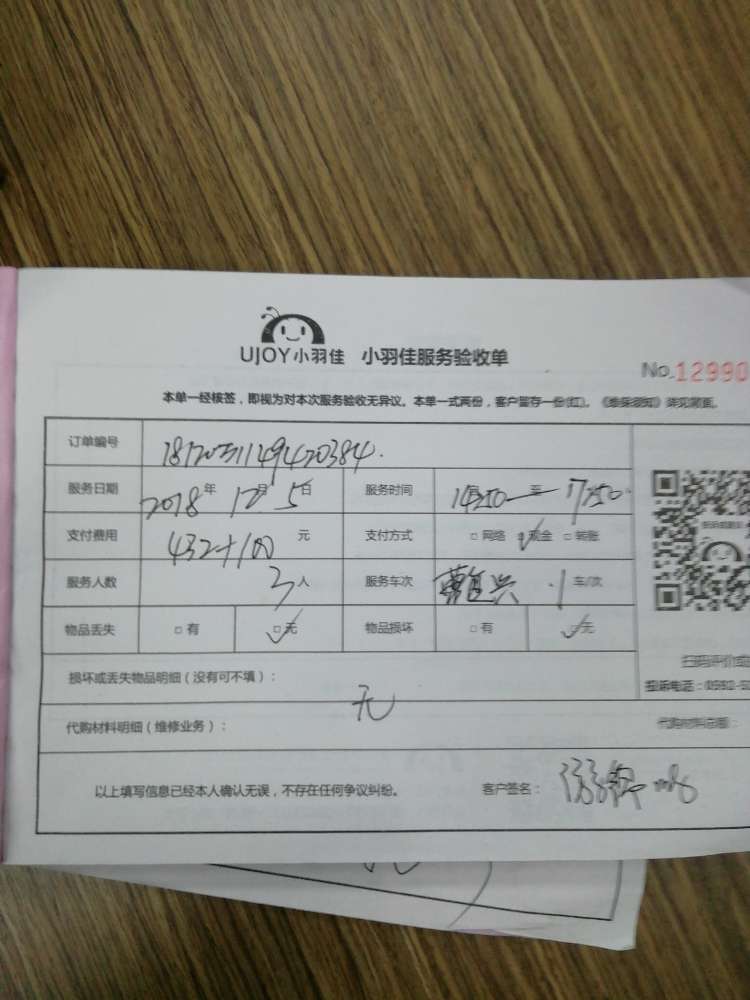 UJOY小羽佳 小羽佳服务验收单
No.12990
本单一经核签，即视为对本次服务验收无异议。本单一式两份，客户留存一份(红)。《维保须知》详见背面。
订单编号
服务日期 2018年 12月 5日 服务时间 14:50 至 17:50
支付费用 432+100 元 支付方式 □网络 ☑现金 □转账
服务人数 3人 服务车次 1 车/次
物品丢失 □有 ☑无 物品损坏 □有 ☑无
损坏或丢失物品明细（没有可不填）：
无
代购材料明细（维修业务）： 代购材料总额：
扫码评价或
投诉电话：0592-5
以上填写信息已经本人确认无误，不存在任何争议纠纷。 客户签名：